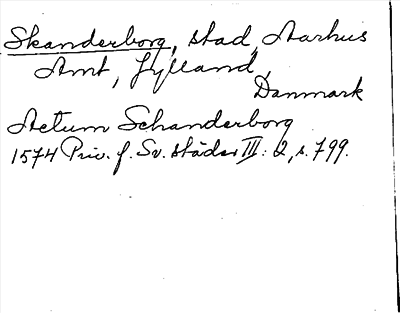 Skanderborg, stad, Aarhus
Amt, Jylland,
Danmark
Actum Schanderborg
1574 Priv. f. Sv. städer III: 2, s. 799.